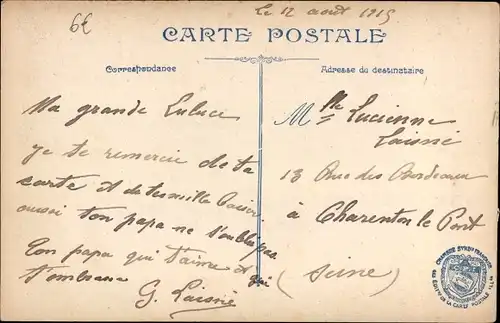 6€
Le 12 août 1915
CARTE POSTALE
Correspondance
Adresse du destinataire
Ma grande Lulue
je te remercie de ta
carte et de tes mille baiser
aussi ton papa ne s'oublie pas
Ton papa qui t'aime et qui
t'embrasse
G. Laisné
Mlle Lucienne
Laisné
13 Rue des Bordeaux
à Charenton le Pont
(Seine)
CHAMBRE SYNDle FRANÇAISE
DES EDITrs DE LA CARTE POSTALE ILL